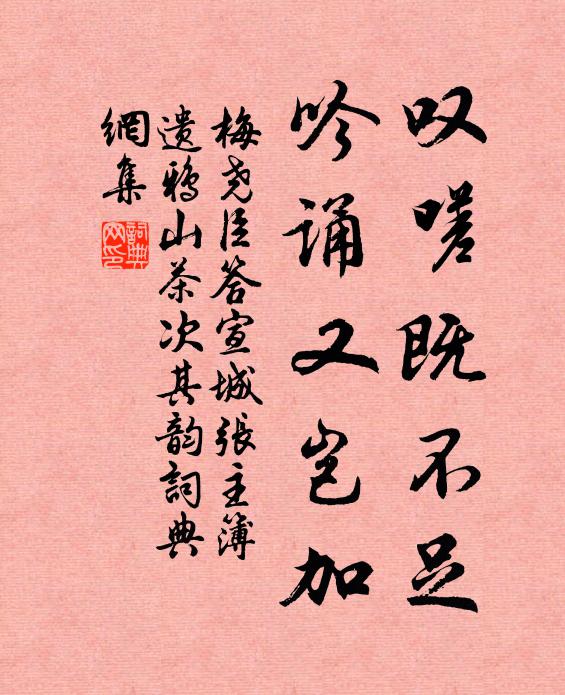 叹嗟既不足
吟诵又岂加
梅尧臣答宣城張主簿
遗鸦山茶次其韵詞典
網集
詞典網印